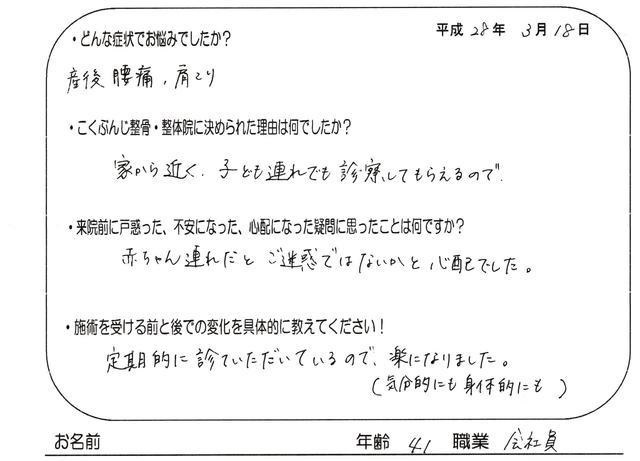 平成 28年 3月18日
・どんな症状でお悩みでしたか?
産後 腰痛、肩こり
・こくぶんじ整骨・整体院に決められた理由は何でしたか?
家から近く、子ども連れでも診察してもらえるので
・来院前に戸惑った、不安になった、心配になった疑問に思ったことは何ですか?
赤ちゃん連れだと ご迷惑ではないかと心配でした。
・施術を受ける前と後での変化を具体的に教えてください!
定期的に診ていただいているので、楽になりました。
(気分的にも身体的にも)
お名前 年齢 41 職業 会社員